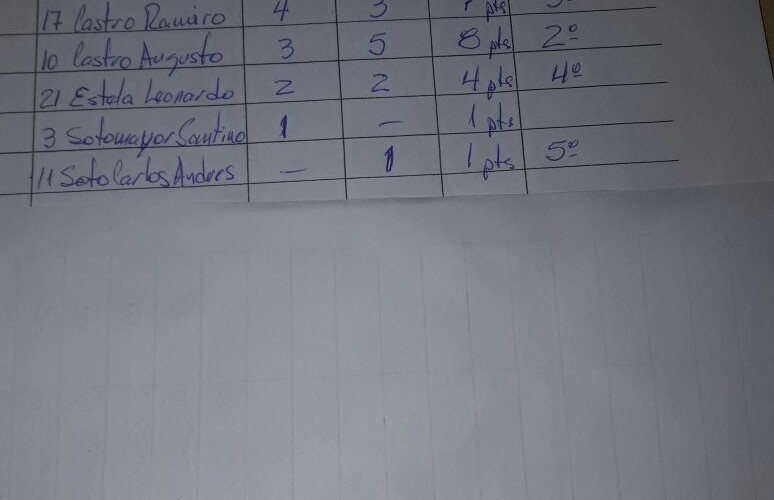 17 Castro Ramiro 4 3 pts
10 Castro Augusto 3 5 8 pts 2º
21 Estela Leonardo 2 2 4 pts 4º
3 Sotomayor Santino 1 - 1 pts
11 Soto Carlos Andres - 1 1 pts 5º